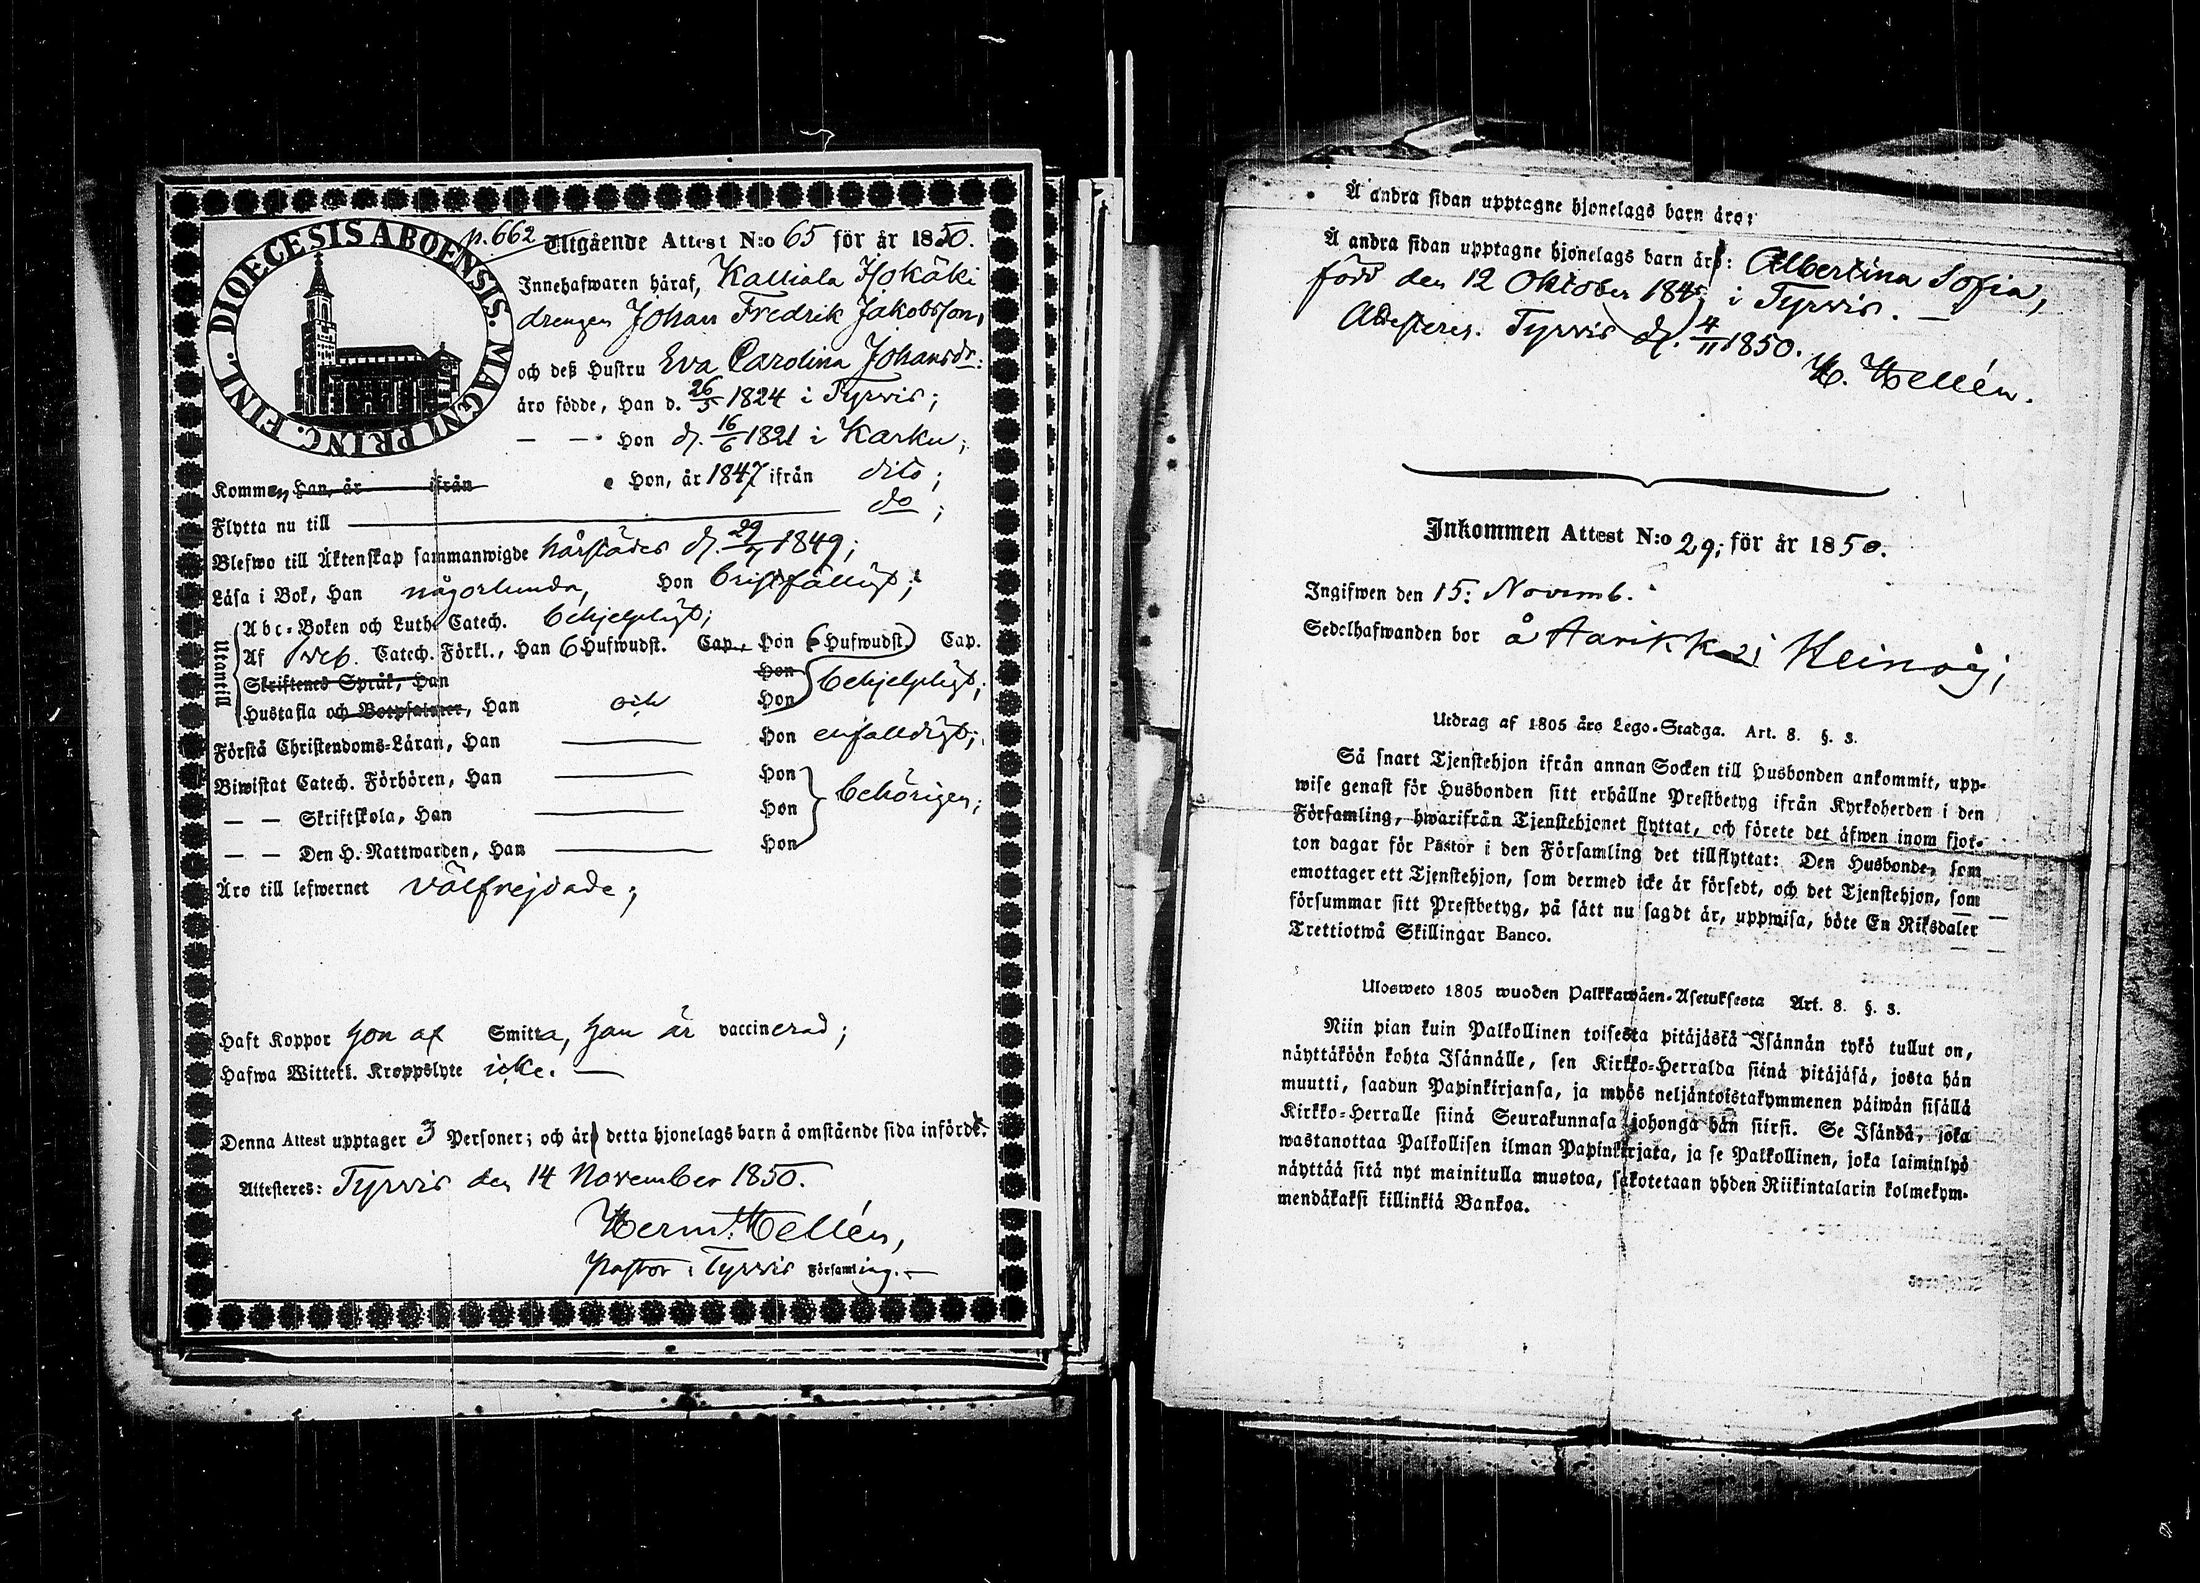 DIOECESIS ABOENSIS. MAGNI PRINC. FINL.
p. 662 Utgående Attest N:o 65 för år 1850.
Innehafwaren häraf, Kalliala Isokäki
drengen Johan Fredrik Jakobsson,
och deß Hustru Eva Carolina Johansdr:
äro födde, Han d. 26/5 1824 i Tyrvis;
— — Hon d. 16/6 1821 i Karku;
Kommen Han, år ifrån Hon, år 1847 ifrån dito;
Flytta nu till do;
Blefwo till Äktenskap sammanwigde härstädes d. 29/7 1849;
Läsa i Bok, Han någorlunda, Hon bristfälligt;
Utantill
Abc-Boken och Luth. Catech. behjelpligt;
Af Catech. Förkl., Han 6 Hufwudst. Cap., Hon 6 Hufwudst. Cap.
Skriftenes Språk, Han Hon
Hustafla och Botpsalmer, Han och Hon behjelpligt;
Förstå Christendoms-Läran, Han — Hon enfalldigt;
Biwistat Catech. Förhören, Han — Hon
— — Skriftskola, Han — Hon behörigen;
— — Den H. Nattwarden, Han — Hon
Äro till lefwernet välfrejdade;
Haft Koppor hon af Smitta, han är vaccinerad;
Hafwa Witterl. Kroppslyte icke. —
Denna Attest upptager 3 Personer; och är detta hjonelags barn å omstående sida infördt.
Attesteres: Tyrvis den 14 November 1850.
Herm. Hellén,
Pastor i Tyrvis Församling. —
Å andra sidan upptagne hjonelags barn äro:
Å andra sidan upptagne hjonelags barn är: Albertina Sofia,
född den 12 Oktober 184 i Tyrvis. —
Attesteres. Tyrvis d. 4/11 1850.
H. Hellén.
Inkommen Attest N:o 29; för år 1850.
Ingifwen den 15: Novemb.
Sedelhafwanden bor å Aarikka i Heinoj;
Utdrag af 1805 års Lego-Stadga. Art. 8. §. 3.
Så snart Tjenstehjon ifrån annan Socken till Husbonden ankommit, upp-
wise genast för Husbonden sitt erhållne Prestbetyg ifrån Kyrkoherden i den
Församling, hwarifrån Tjenstehjonet flyttat, och förete det äfwen inom fjor-
ton dagar för Pastor i den Församling det tillflyttat: Den Husbonde, som
emottager ett Tjenstehjon, som dermed icke är försedt, och det Tjenstehjon, som
försummar sitt Prestbetyg, på sätt nu sagdt är, uppwisa, böte En Riksdaler
Trettiotwå Skillingar Banco.
Ulosweto 1805 wuoden Palkkawäen-Asetuksesta Art. 8. §. 3.
Niin pian kuin Palkollinen toisesta pitäjästä Isännän tykö tullut on,
näyttäköön kohta Isännälle, sen Kirkko-Herralda siinä pitäjäsä, josta hän
muutti, saadun Papinkirjansa, ja myös neljäntoistakymmenen päiwän sisällä
Kirkko-Herralle siinä Seurakunnasa johonga hän siirsi. Se Isändä, joka
wastanottaa Palkollisen ilman Papinkirjata, ja se Palkollinen, joka laiminlyö
näyttää sitä nyt mainitulla muotoa, sakotetaan yhden Riikintalarin kolmekym-
mendäkaksi killinkiä Bankoa.